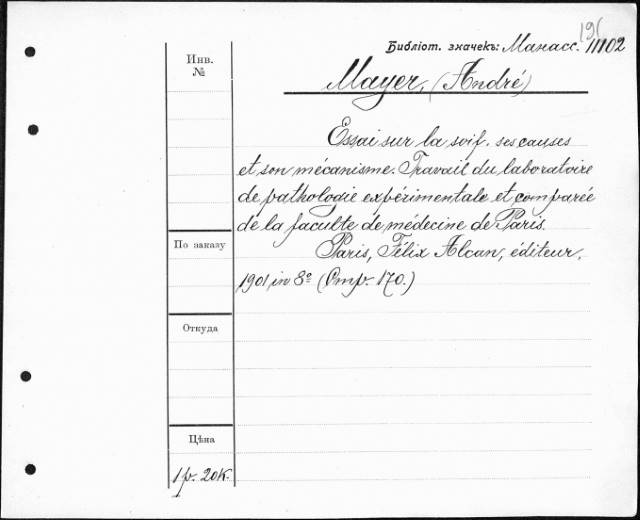 Библіот. значекъ: Манасс. 11102
191
Инв.
№
Mayer, (André)
Essai sur la soif. ses causes
et son mécanisme. Travail du laboratoire
de pathologie expérimentale et comparée
de la faculte de médecine de Paris.
По заказу
Paris, Félix Alcan, éditeur,
1901 in 8º (Стр. 170.)
Откуда
Цѣна
1 р. 20 к.